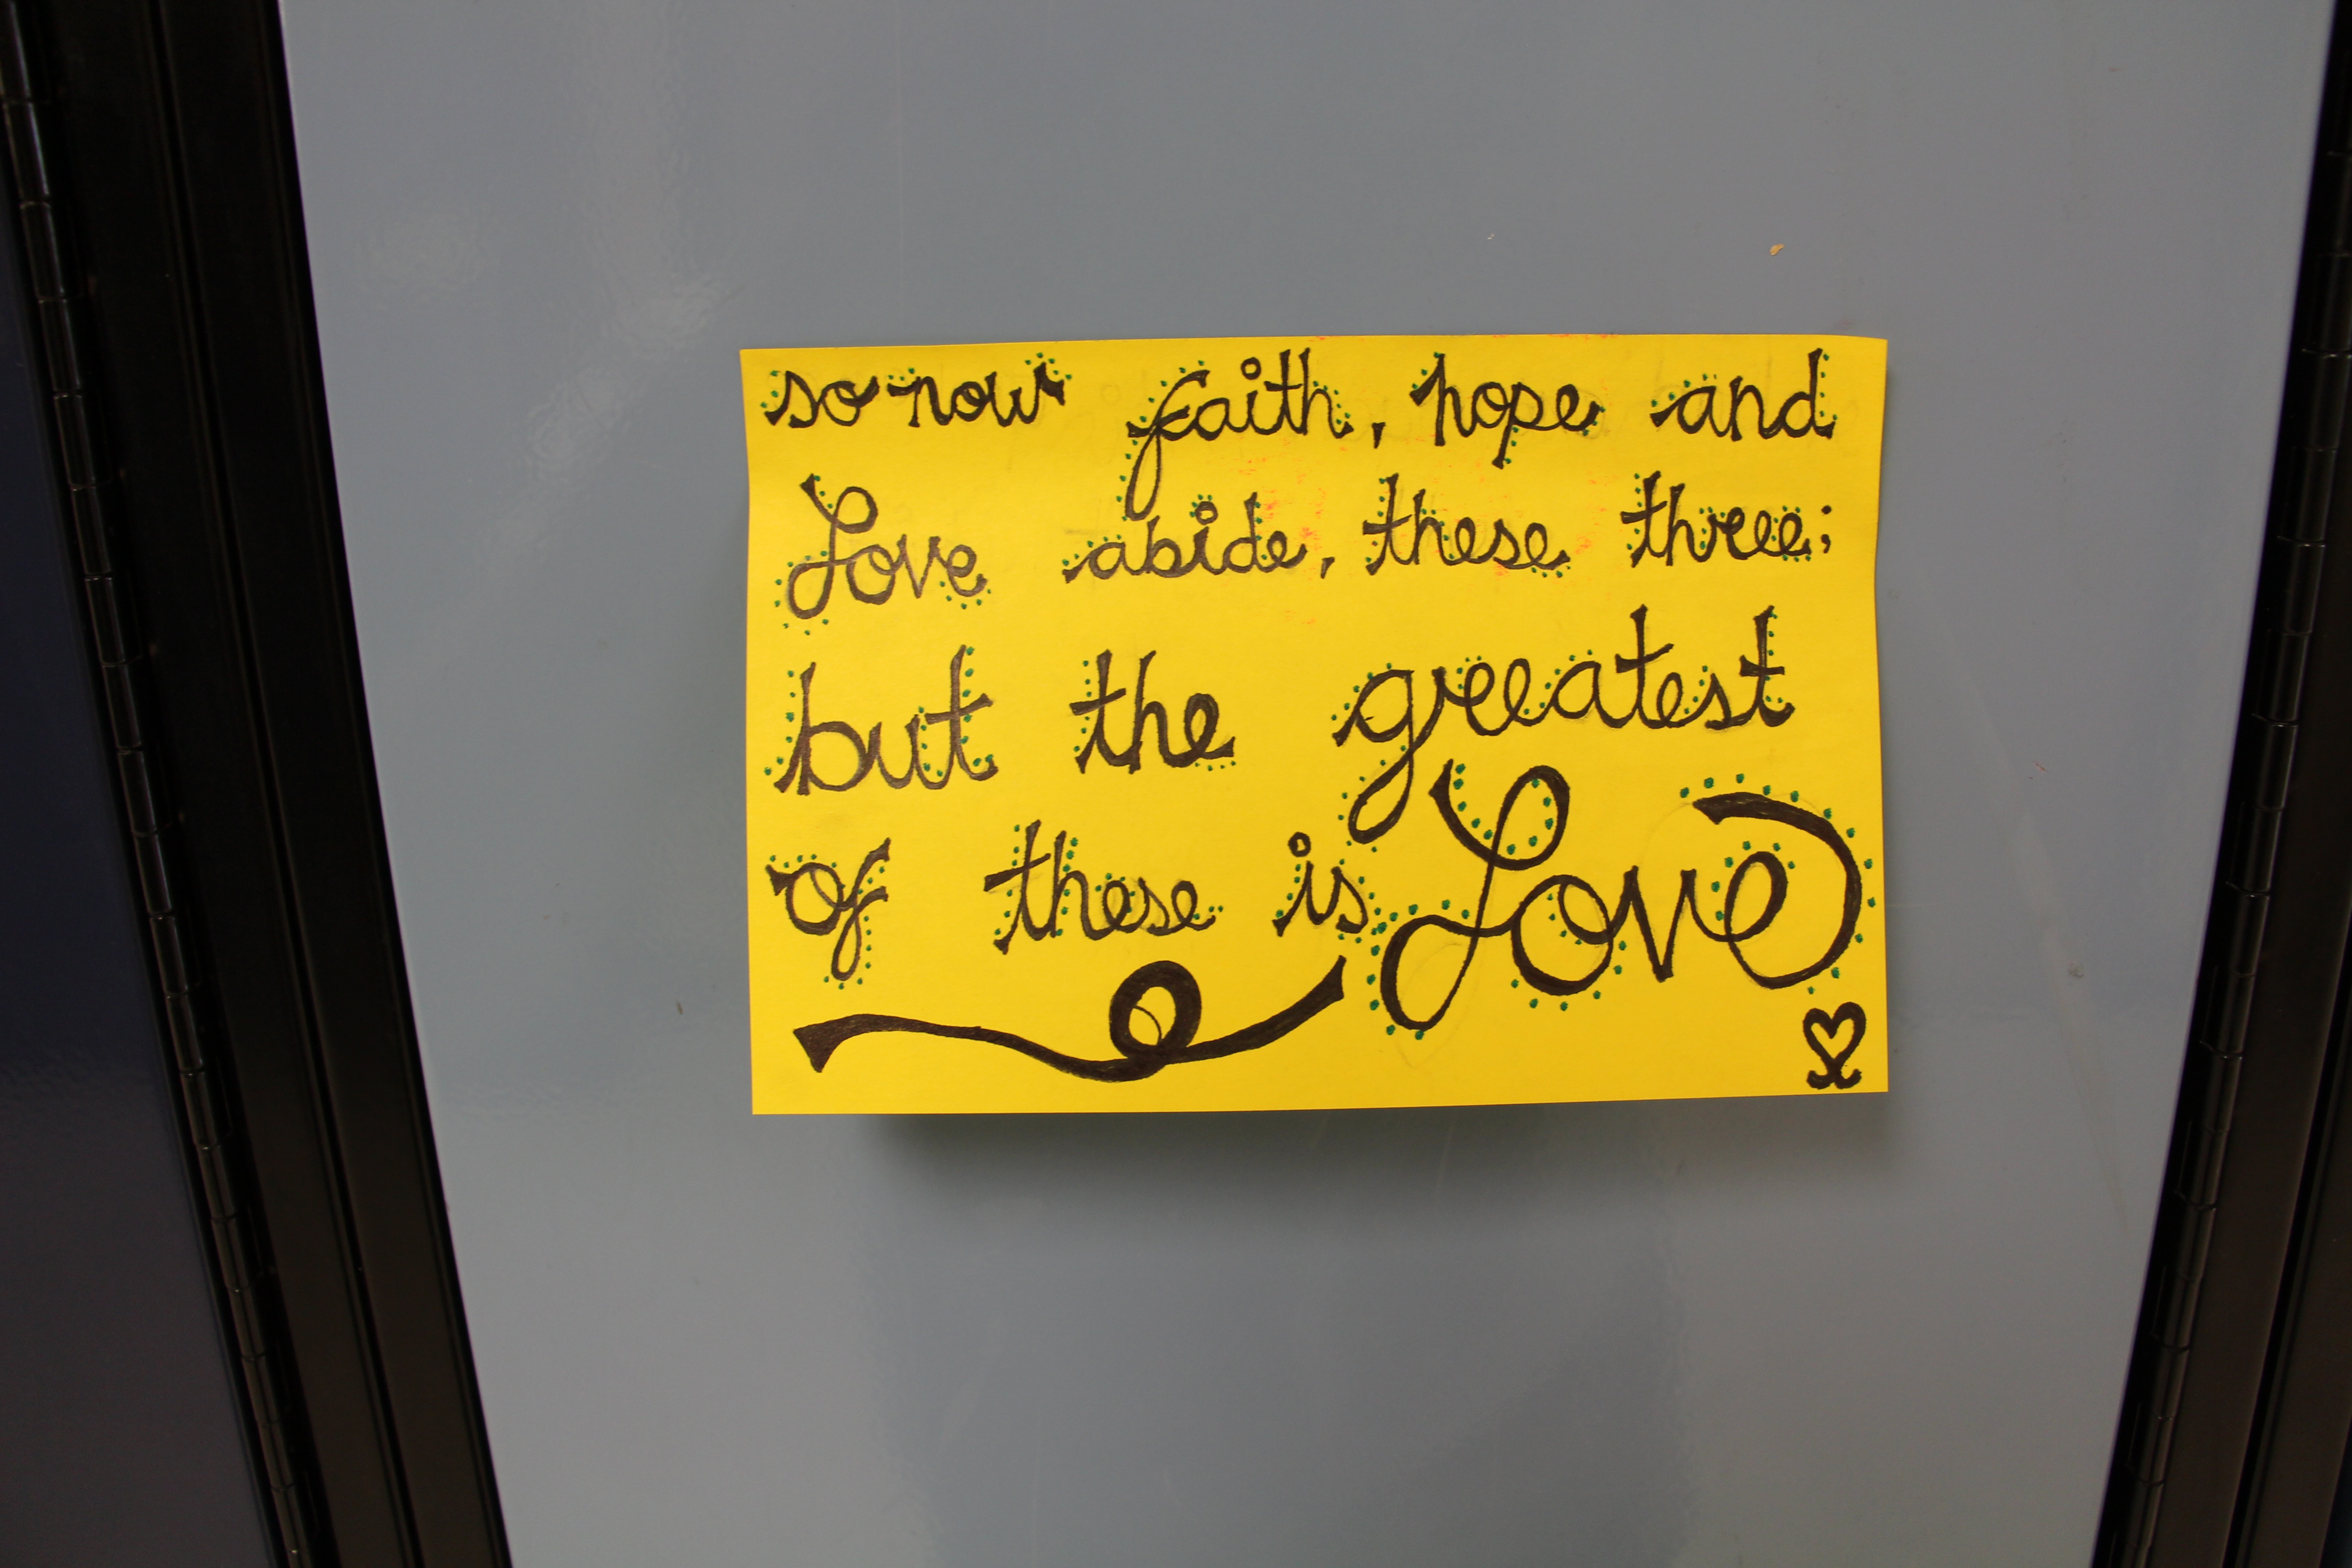 so now faith, hope and
Love abide, these three;
but the greatest
of these is Love